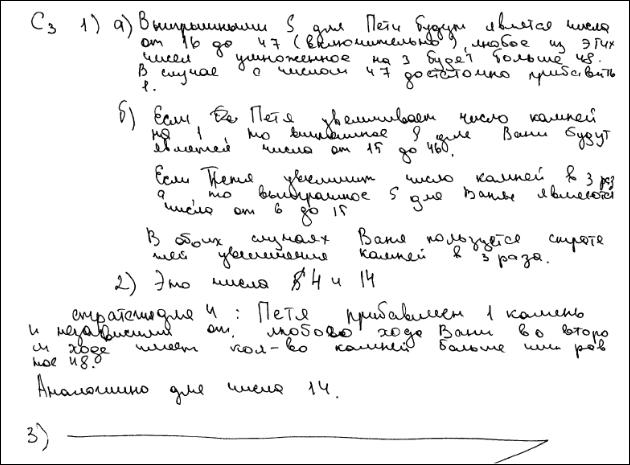 С3 1) а) Выигрышными S для Пети будут являтся числа
от 16 до 47 (включительно), любое из этих
чисел умноженное на 3 будет больше 48.
В случае с числом 47 достаточно прибавить
1.
б) Если Петя увеличивает число камней
на 1, то S для Вани будут
являтся числа от 15 до 46.
Если Петя увеличит число камней в 3 раз
а то выигрышное S для Вани являются
числа от 6 до 15
В обоих случаях Ваня пользуется страте
гией увеличения камней в 3 раза.
2) Это числа 4 и 14
стратегия для 4: Петя прибавляет 1 камень
и независимо от любого хода Вани во второ
м ходе имеет кол-во камней больше или ров
ное 48.
Аналогично для числа 14.
3)